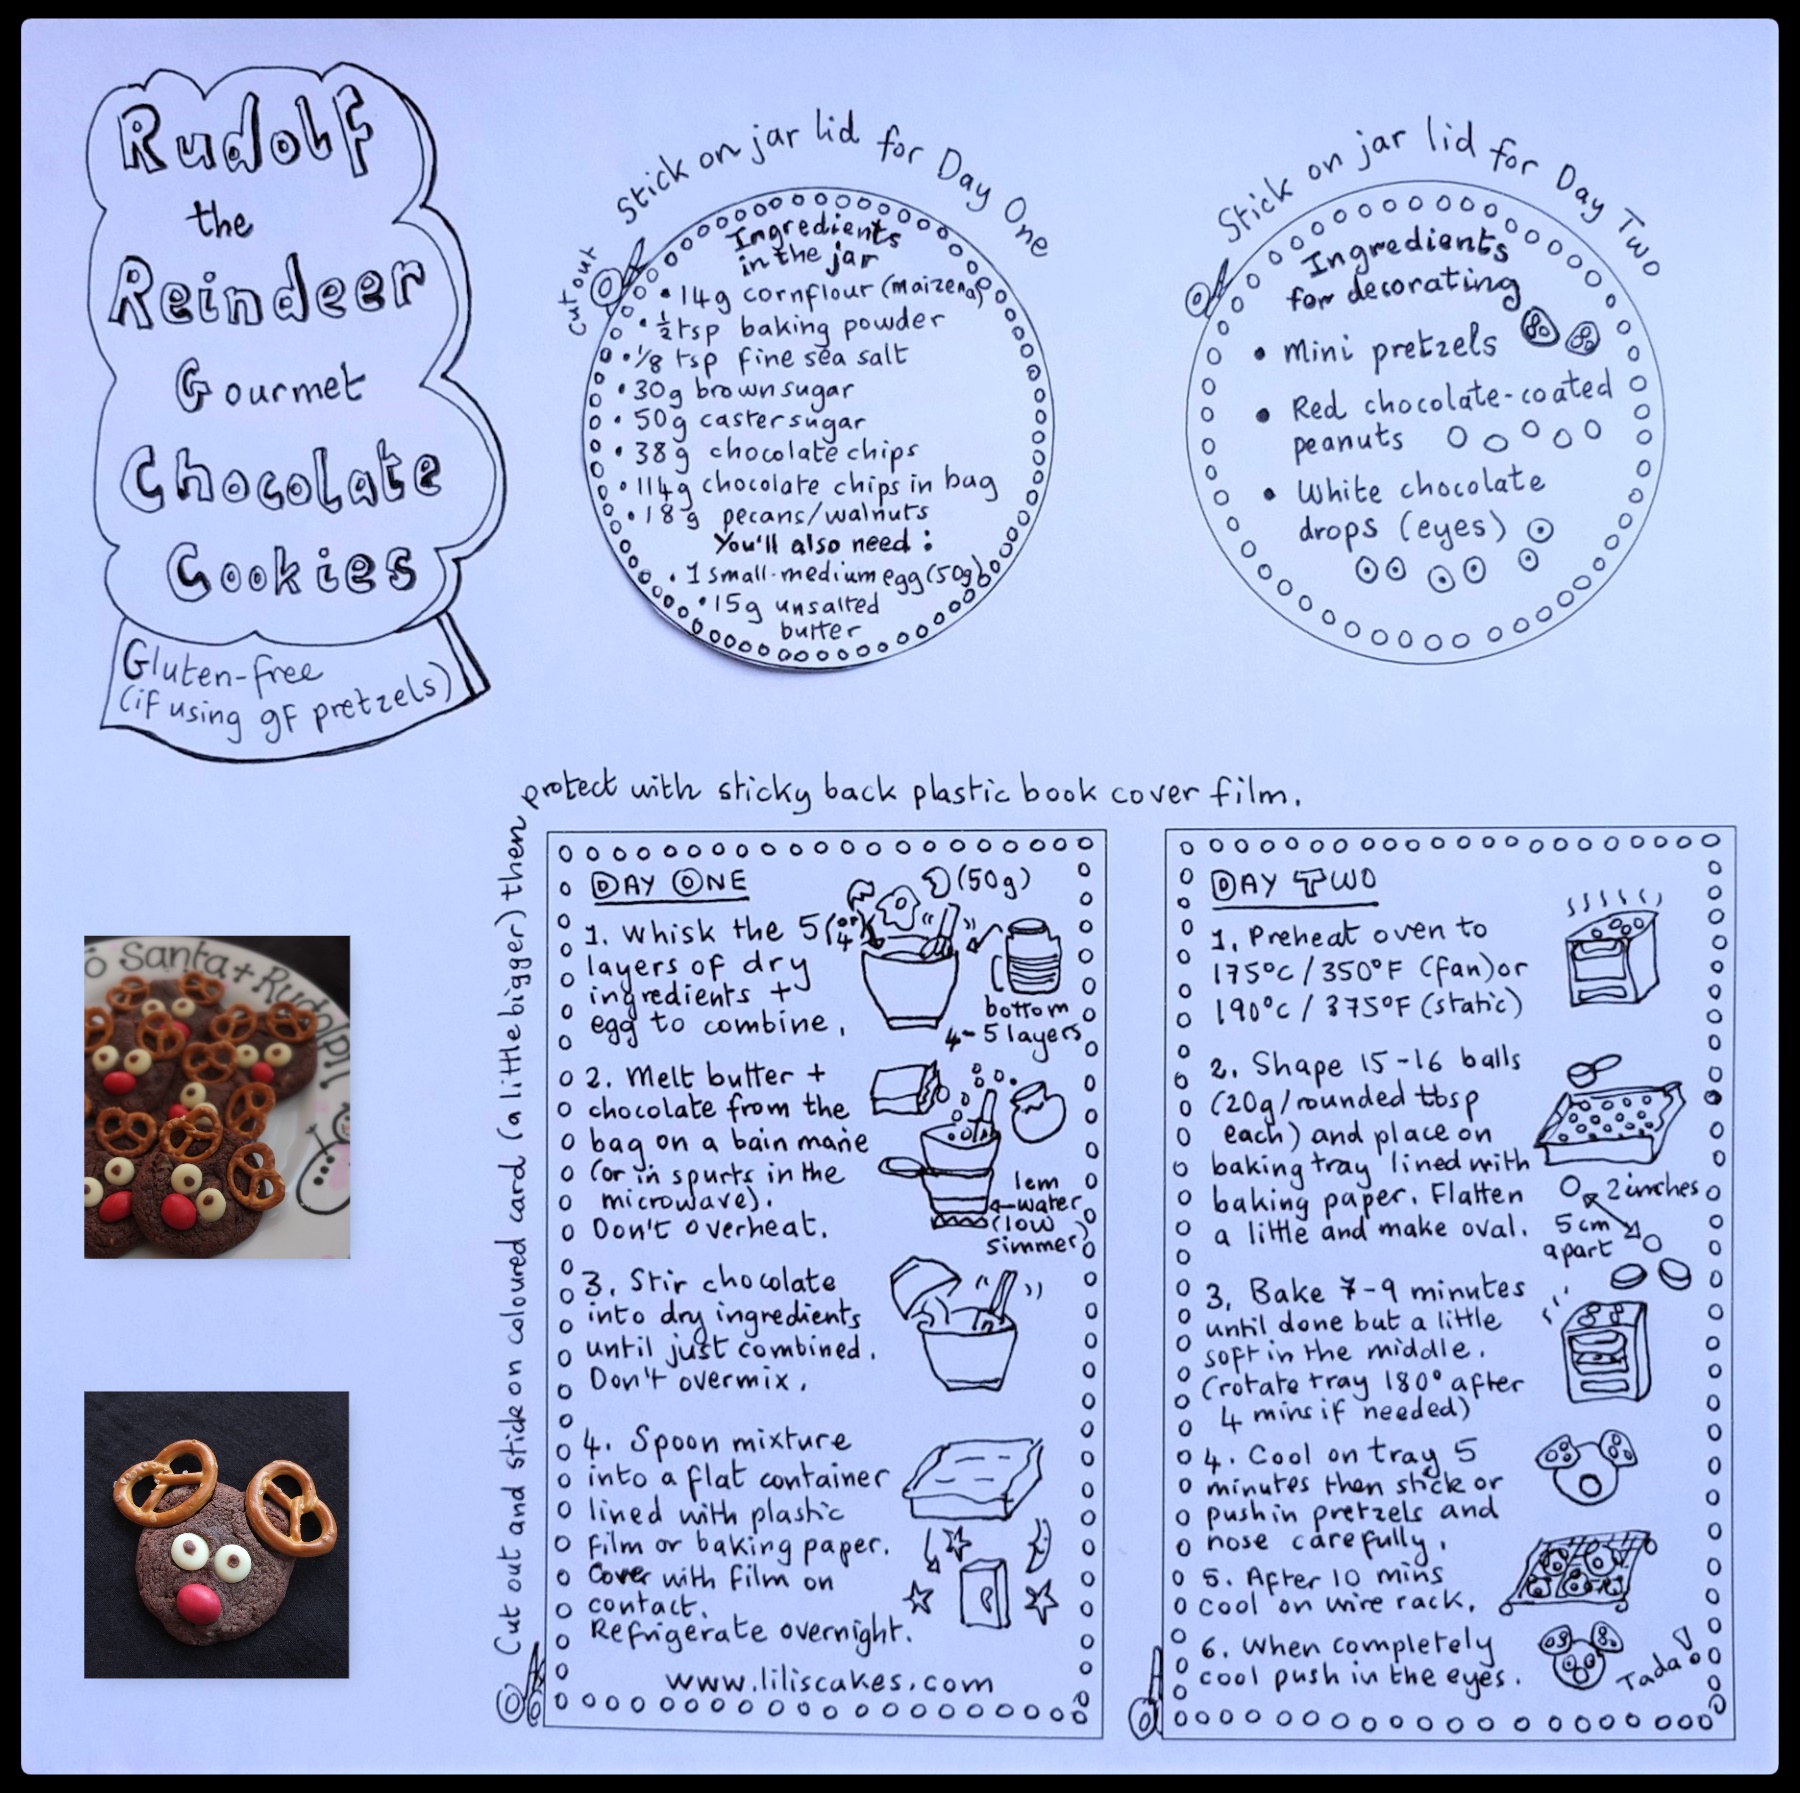 Rudolf
the
Reindeer
Gourmet
Chocolate
Cookies
Gluten-free
(if using gf pretzels)
Stick on jar lid for Day One
Cut out
Ingredients
in the jar
• 14g cornflour (maizena)
• ½ tsp baking powder
• 1/8 tsp fine sea salt
• 30g brown sugar
• 50g caster sugar
• 38g chocolate chips
• 114g chocolate chips in bag
• 18g pecans/walnuts
You'll also need:
• 1 small-medium egg (50g)
• 15g unsalted
butter
Stick on jar lid for Day Two
Ingredients
for decorating
• Mini pretzels
• Red chocolate-coated
peanuts
• White chocolate
drops (eyes)
Cut out and stick on coloured card (a little bigger) then protect with sticky back plastic book cover film.
DAY ONE
(50g)
1. Whisk the 5 (or 4)
layers of dry
ingredients +
egg to combine.
bottom
4-5 layers
2. Melt butter +
chocolate from the
bag on a bain marie
(or in spurts in the
microwave).
Don't overheat.
1cm
water
(low
simmer)
3. Stir chocolate
into dry ingredients
until just combined.
Don't overmix.
4. Spoon mixture
into a flat container
lined with plastic
film or baking paper.
Cover with film on
contact.
Refrigerate overnight.
www.liliscakes.com
DAY TWO
1. Preheat oven to
175°C / 350°F (fan) or
190°C / 375°F (static)
2. Shape 15-16 balls
(20g/rounded tbsp
each) and place on
baking tray lined with
baking paper. Flatten
a little and make oval.
2 inches
5 cm
apart
3. Bake 7-9 minutes
until done but a little
soft in the middle.
(rotate tray 180° after
4 mins if needed)
4. Cool on tray 5
minutes then stick or
push in pretzels and
nose carefully.
5. After 10 mins
cool on wire rack.
6. When completely
cool push in the eyes.
Tada!
Santa + Rudolph